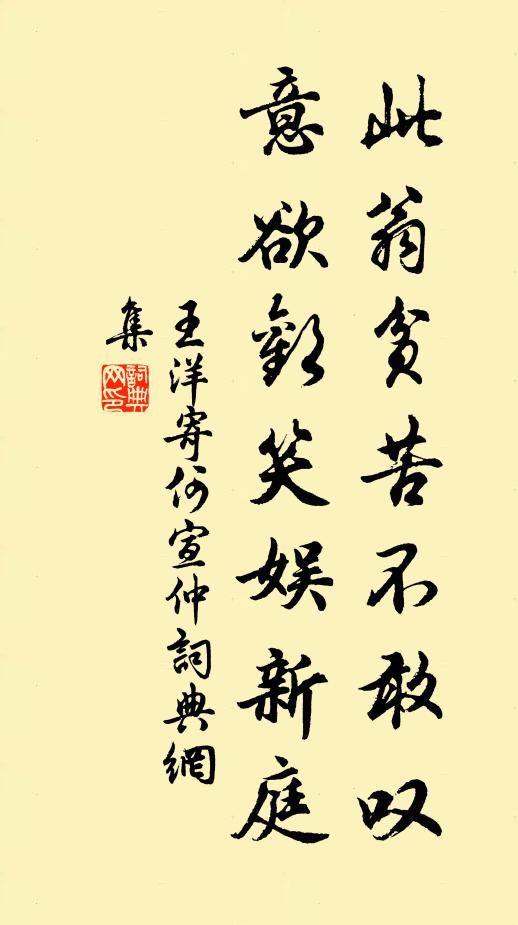 此翁貧苦不敢叹
意欲歡笑娛新庭
王洋寄何宣仲詞典網
集
詞典
网印